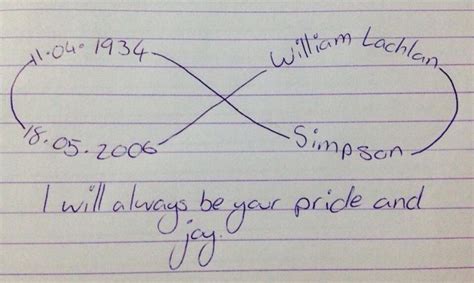 11.04.1934
William Lachlan
18.05.2006
Simpson
I will always be your pride and
joy.